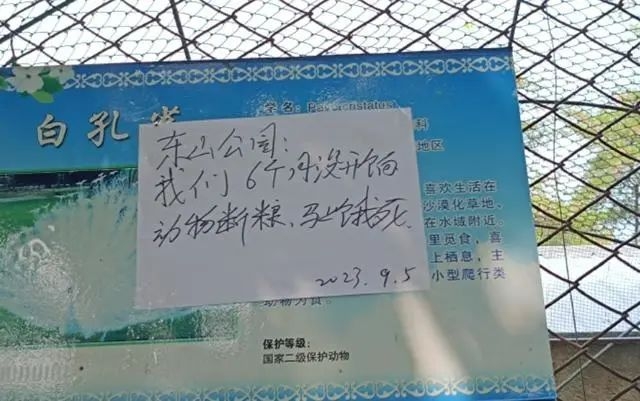 白孔雀
学名:
科
地区
东山公园:
我们6个月没开饷
动物断粮、马上饿死.
2023.9.5
喜欢生活在
沙漠化草地、
在水域附近。
里觅食,喜
上栖息,主
小型爬行类
动物为食。
保护等级:
国家二级保护动物